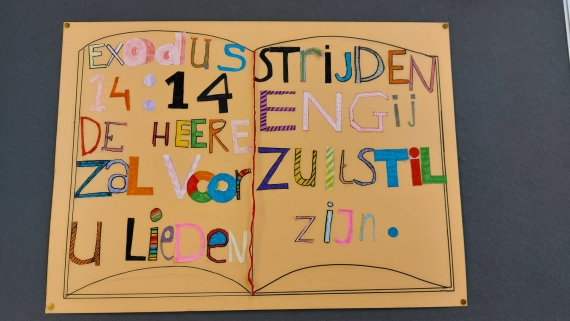 Exodus
14:14
DE HEERE
ZaL Voor
u LieDeN
STrijDEN
ENGij
ZULtSTiL
zijn.